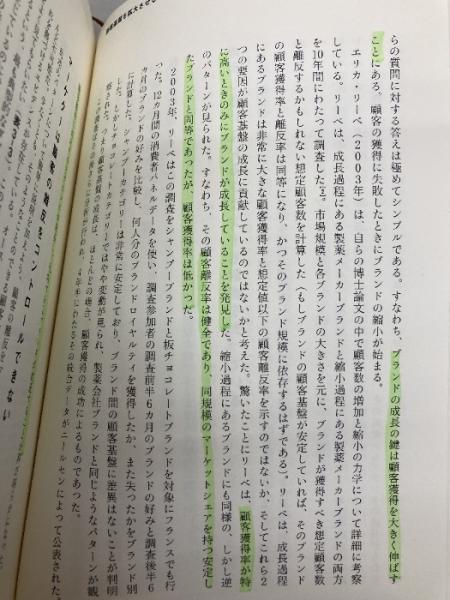 らの質問に対する答えは極めてシンプルである。すなわち、ブランドの成長の鍵は顧客獲得を大きく伸ばす
ことにある。顧客の獲得に失敗したときにブランドの縮小が始まる。
エリカ・リーベ（2003年）は、自らの博士論文の中で顧客数の増加と縮小の力学について詳細に考察
している。リーベは、成長過程にある製薬メーカーブランドと縮小過程にある製薬メーカーブランドの両方
を10年間にわたって調査した。市場規模と各ブランドの大きさを元に、ブランドが獲得すべき想定顧客数
と離反するかもしれない想定顧客数を計算した（もしブランドの顧客基盤が安定していれば、そのブランド
の顧客獲得率と離反率は同等になり、かつそのブランド規模に依存するはずである）。リーベは、成長過程
にあるブランドは非常に大きな顧客獲得率と想定値以下の顧客離反率を示すのではないか、そしてこれら2
つの要因が顧客基盤の成長に貢献しているのではないかと考えた。驚いたことにリーベは、顧客獲得率が特
に高いときのみにブランドが成長していることを発見した。縮小過程にあるブランドにも同様の、しかし逆
のパターンが見られた。すなわち、その顧客離反率は健全であり、同規模のマーケットシェアを持つ安定し
たブランドと同等であったが、顧客獲得率は低かった。
2003年、リーベはこの調査をシャンプーブランドと板チョコレートブランドを対象にフランスでも行
った。12カ月間の消費者パネルデータを使い、調査参加者の調査前半6カ月のブランドの好みと調査後半6
カ月のブランドの好みを比較し、何人分のブランドロイヤルティを獲得したか、また失ったかをブランド別
に計算した。シャンプーカテゴリーは非常に安定しており、ブランド間の顧客基盤に差異はないことが判明
した。しかしチョコレートカテゴリーではやや変動が見られ、製薬会社ブランドと同じようなパターンが観
つまり顧客基盤の成長は、ほとんどの場合、顧客獲得の成功によるものであった。
にわたるその統合データがニールセンによって公表された。
コントロールできない